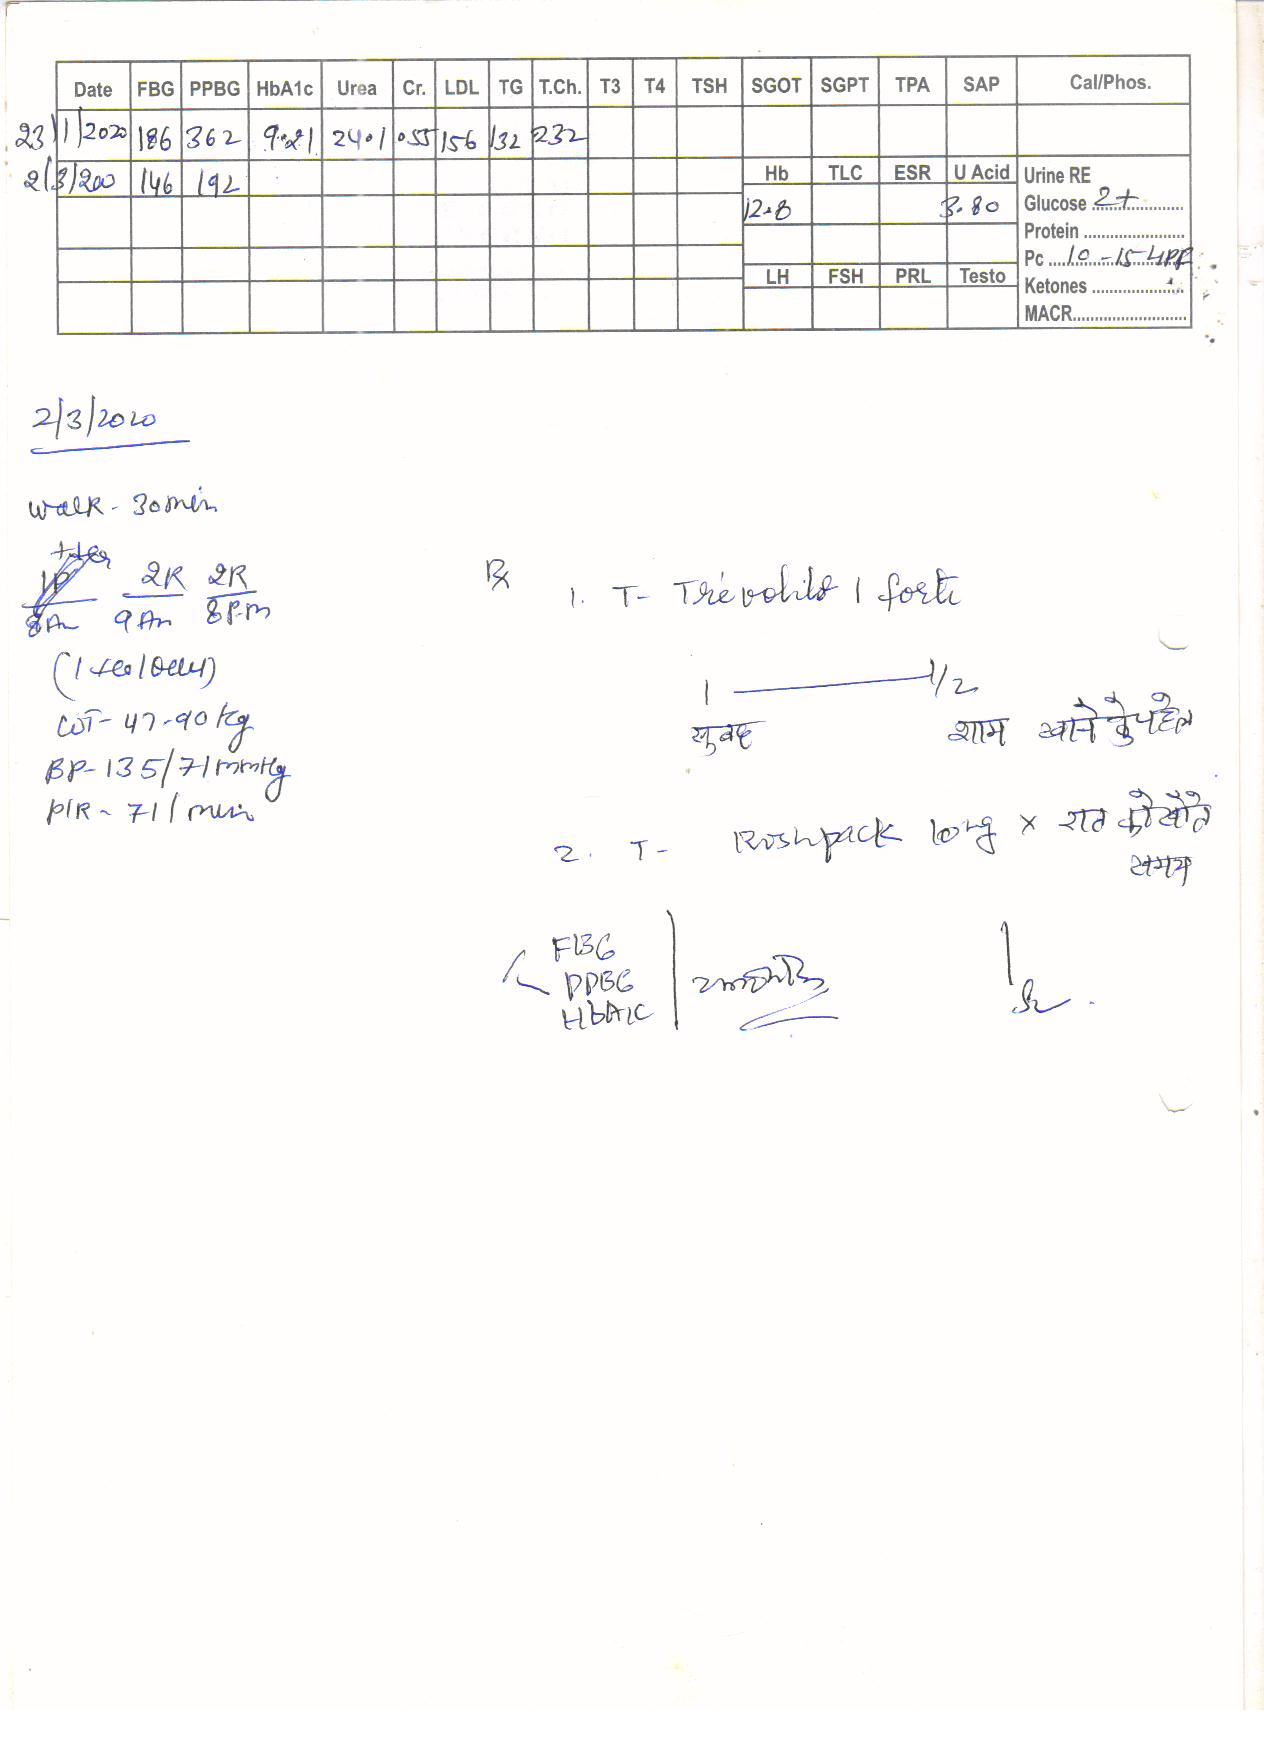 Date FBG PPBG HbA1c Urea Cr. LDL TG T.Ch. T3 T4 TSH SGOT SGPT TPA SAP Cal/Phos.
23/1/2020 186 362 9.21 24.1 0.55 156 132 232
2/3/200 146 192
Hb TLC ESR U Acid
12.8 3.80
LH FSH PRL Testo
Urine RE
Glucose 2+
Protein
Pc 10-15 HPF
Ketones
MACR
2/3/2020
walk - 30 min
2R 2R
8Am 9Am 8P.m
WT- 47.90 kg
BP- 135/71 mmHg
P/R - 71/min
Rx
1. T- Trivolib 1 forte
1 1/2
सुबह शाम खाने के पहले
2. T- Roshpack long x रात को सोते
समय
FBG
PPBG
HbA1C
2 months